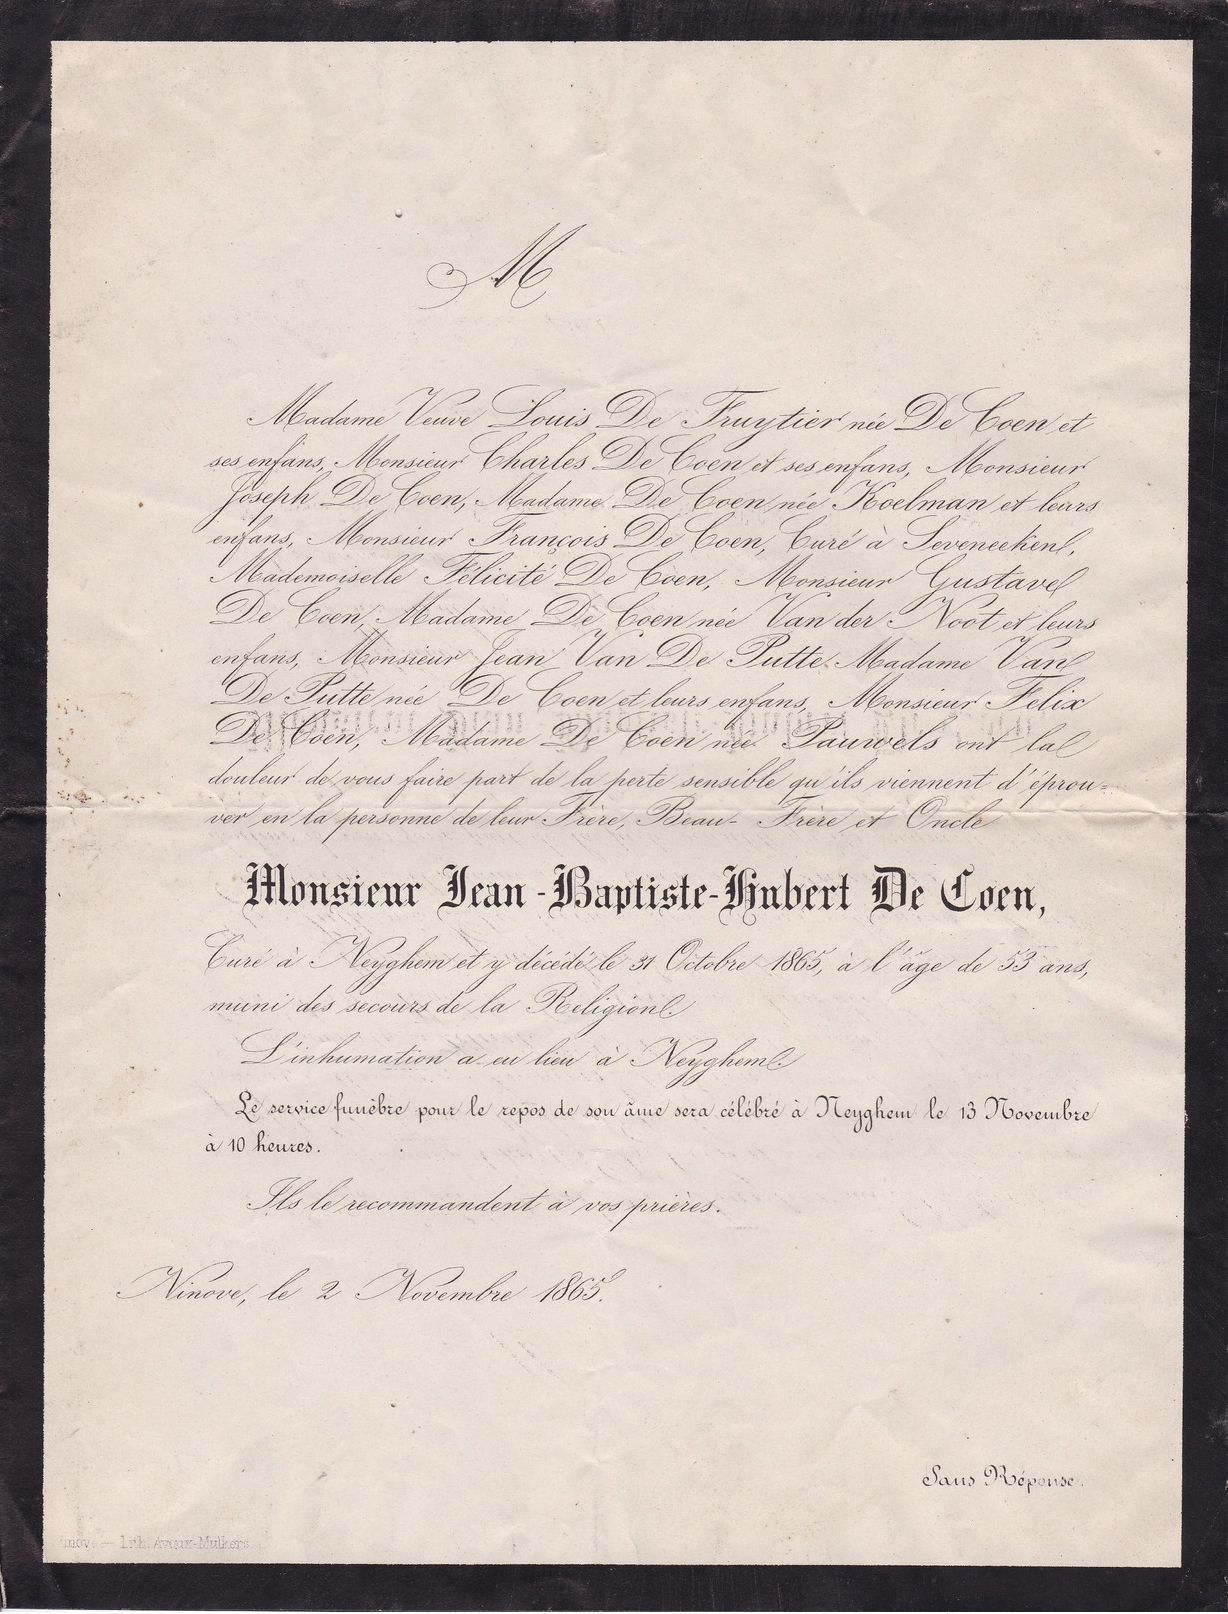 M
Madame Veuve Louis De Fruytier née De Coen et
ses enfans, Monsieur Charles De Coen et ses enfans, Monsieur
Joseph De Coen, Madame De Coen née Koelman et leurs
enfans, Monsieur François De Coen, Curé à Seveneeken,
Mademoiselle Félicité De Coen, Monsieur Gustave
De Coen, Madame De Coen née Van der Noot et leurs
enfans, Monsieur Jean Van De Putte Madame Van
De Putte née De Coen et leurs enfans, Monsieur Felix
De Coen, Madame De Coen née Pauwels ont la
douleur de vous faire part de la perte sensible qu'ils viennent d'éprou=
ver en la personne de leur Frère, Beau-Frère et Oncle
Monsieur Jean-Baptiste-Hubert De Coen,
Curé à Neyghem et y décédé le 31 Octobre 1865, à l'âge de 53 ans,
muni des secours de la Religion.
L'inhumation a eu lieu à Neyghem.
Le service funèbre pour le repos de son âme sera célébré à Neyghem le 13 Novembre
à 10 heures.
Ils le recommandent à vos prières.
Ninove, le 2 Novembre 1865.
Sans Réponse.
inove — Lith. Avoux-Mulkers